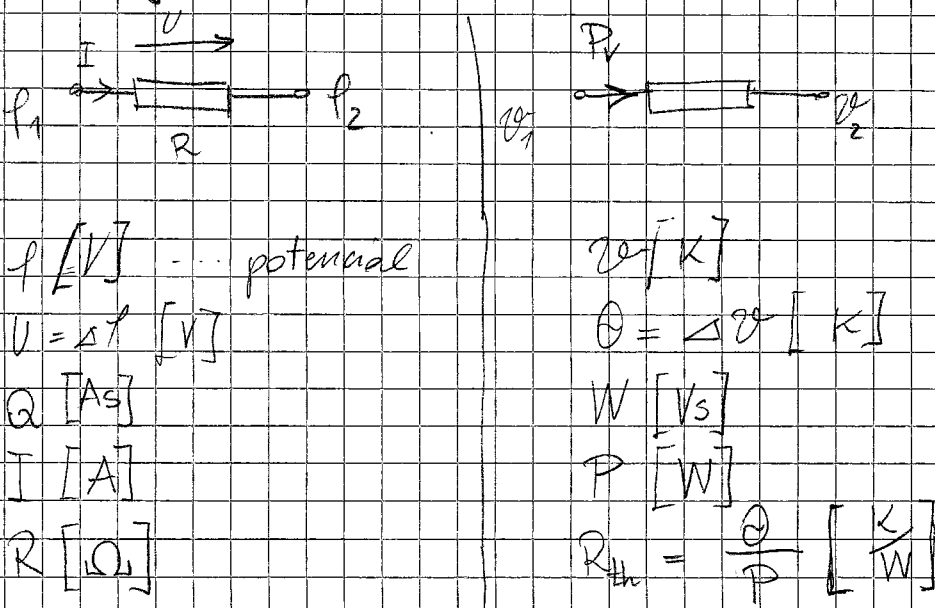 U
I
φ1 φ2
R
φ [V] .... potencial
U = Δφ [V]
Q [As]
I [A]
R [Ω]
Pv
ϑ1 ϑ2
ϑ [K]
Θ = Δϑ [K]
W [Vs]
P [W]
Rth = Θ/P [K/W]